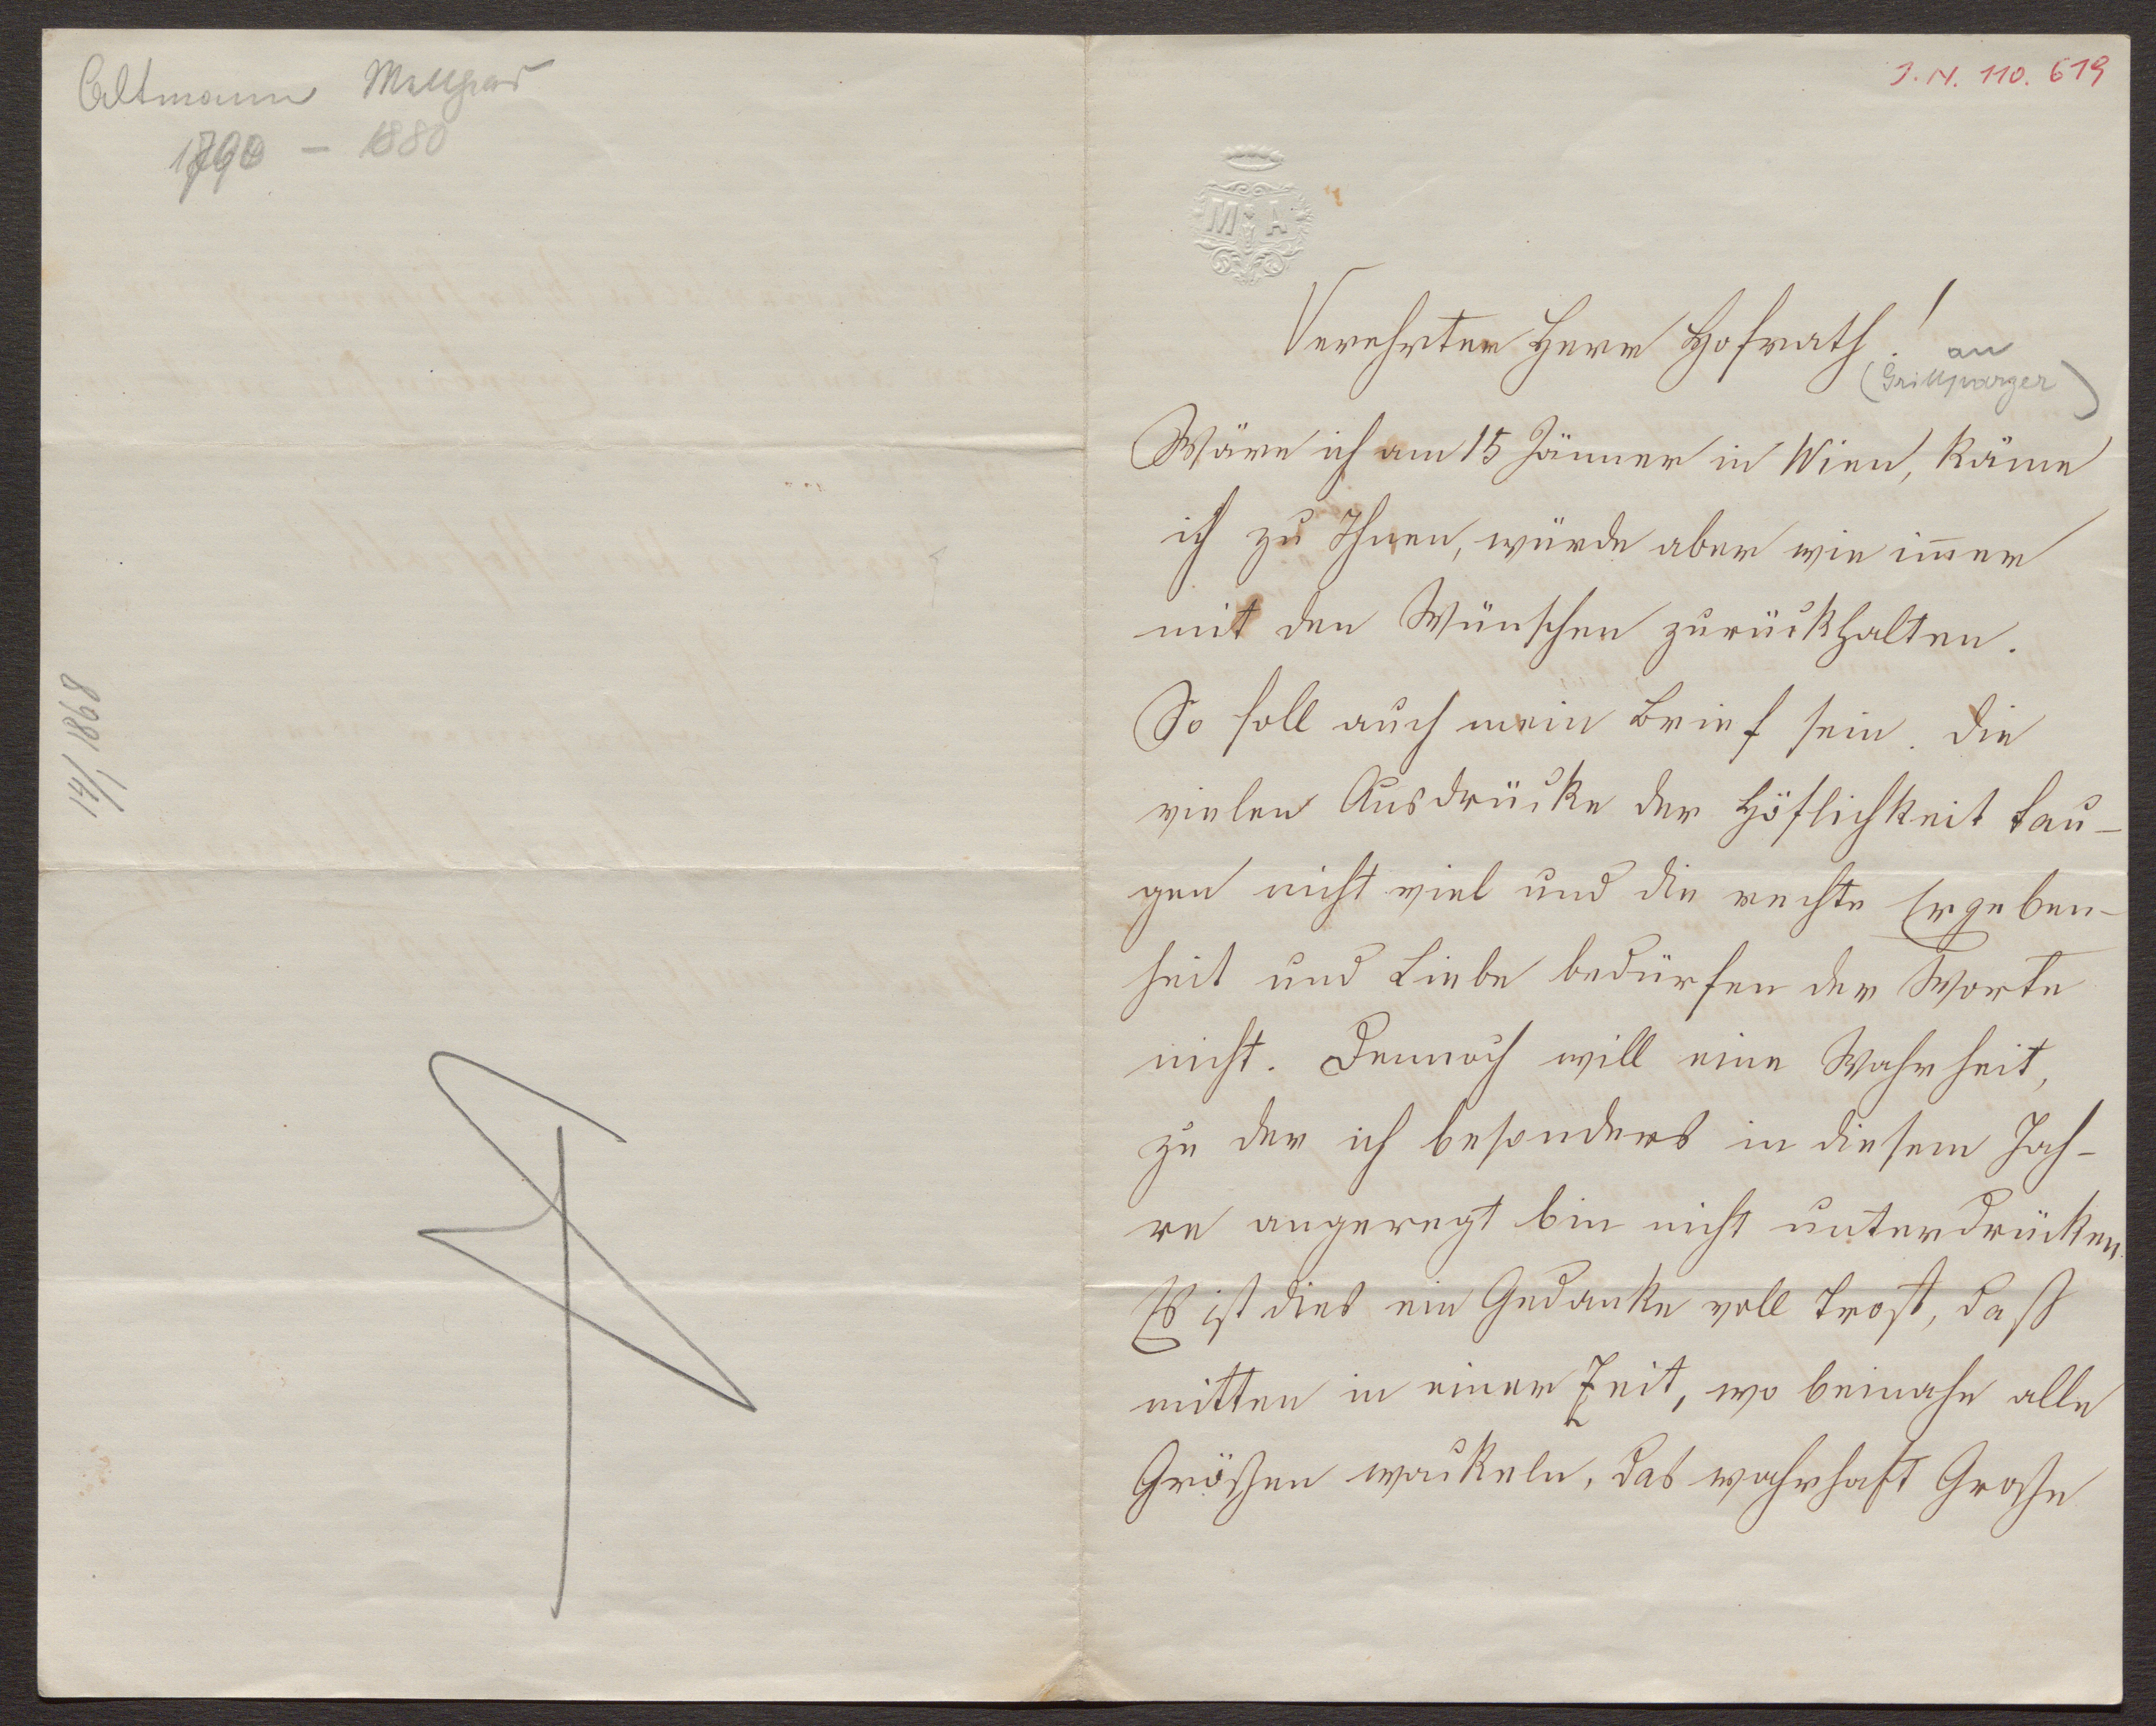 Altmann
1790 - 1880
14/1 1868
J. N. 110. 619
M A
Verehrter Herr Hofrath!
an
(Grillparzer)
Wäre ich am 15 Jänner in Wien, käme
ich zu Ihnen, würde aber wie im̅er
mit den Wünschen zurückhalten.
So soll auch mein Brief sein. Die
vielen Ausdrücke der Höflichkeit tau-
gen nicht viel und die rechte Ergeben-
heit und Liebe bedürfen der Worte
nicht. Dennoch will eine Wahrheit,
zu der ich besonders in diesem Jah-
re angeregt bin nicht unterdrücken.
Es ist dies ein Gedanke voll Trost, daß
mitten in einer Zeit, wo beinahe alle
Größen wackeln, das wahrhaft Große